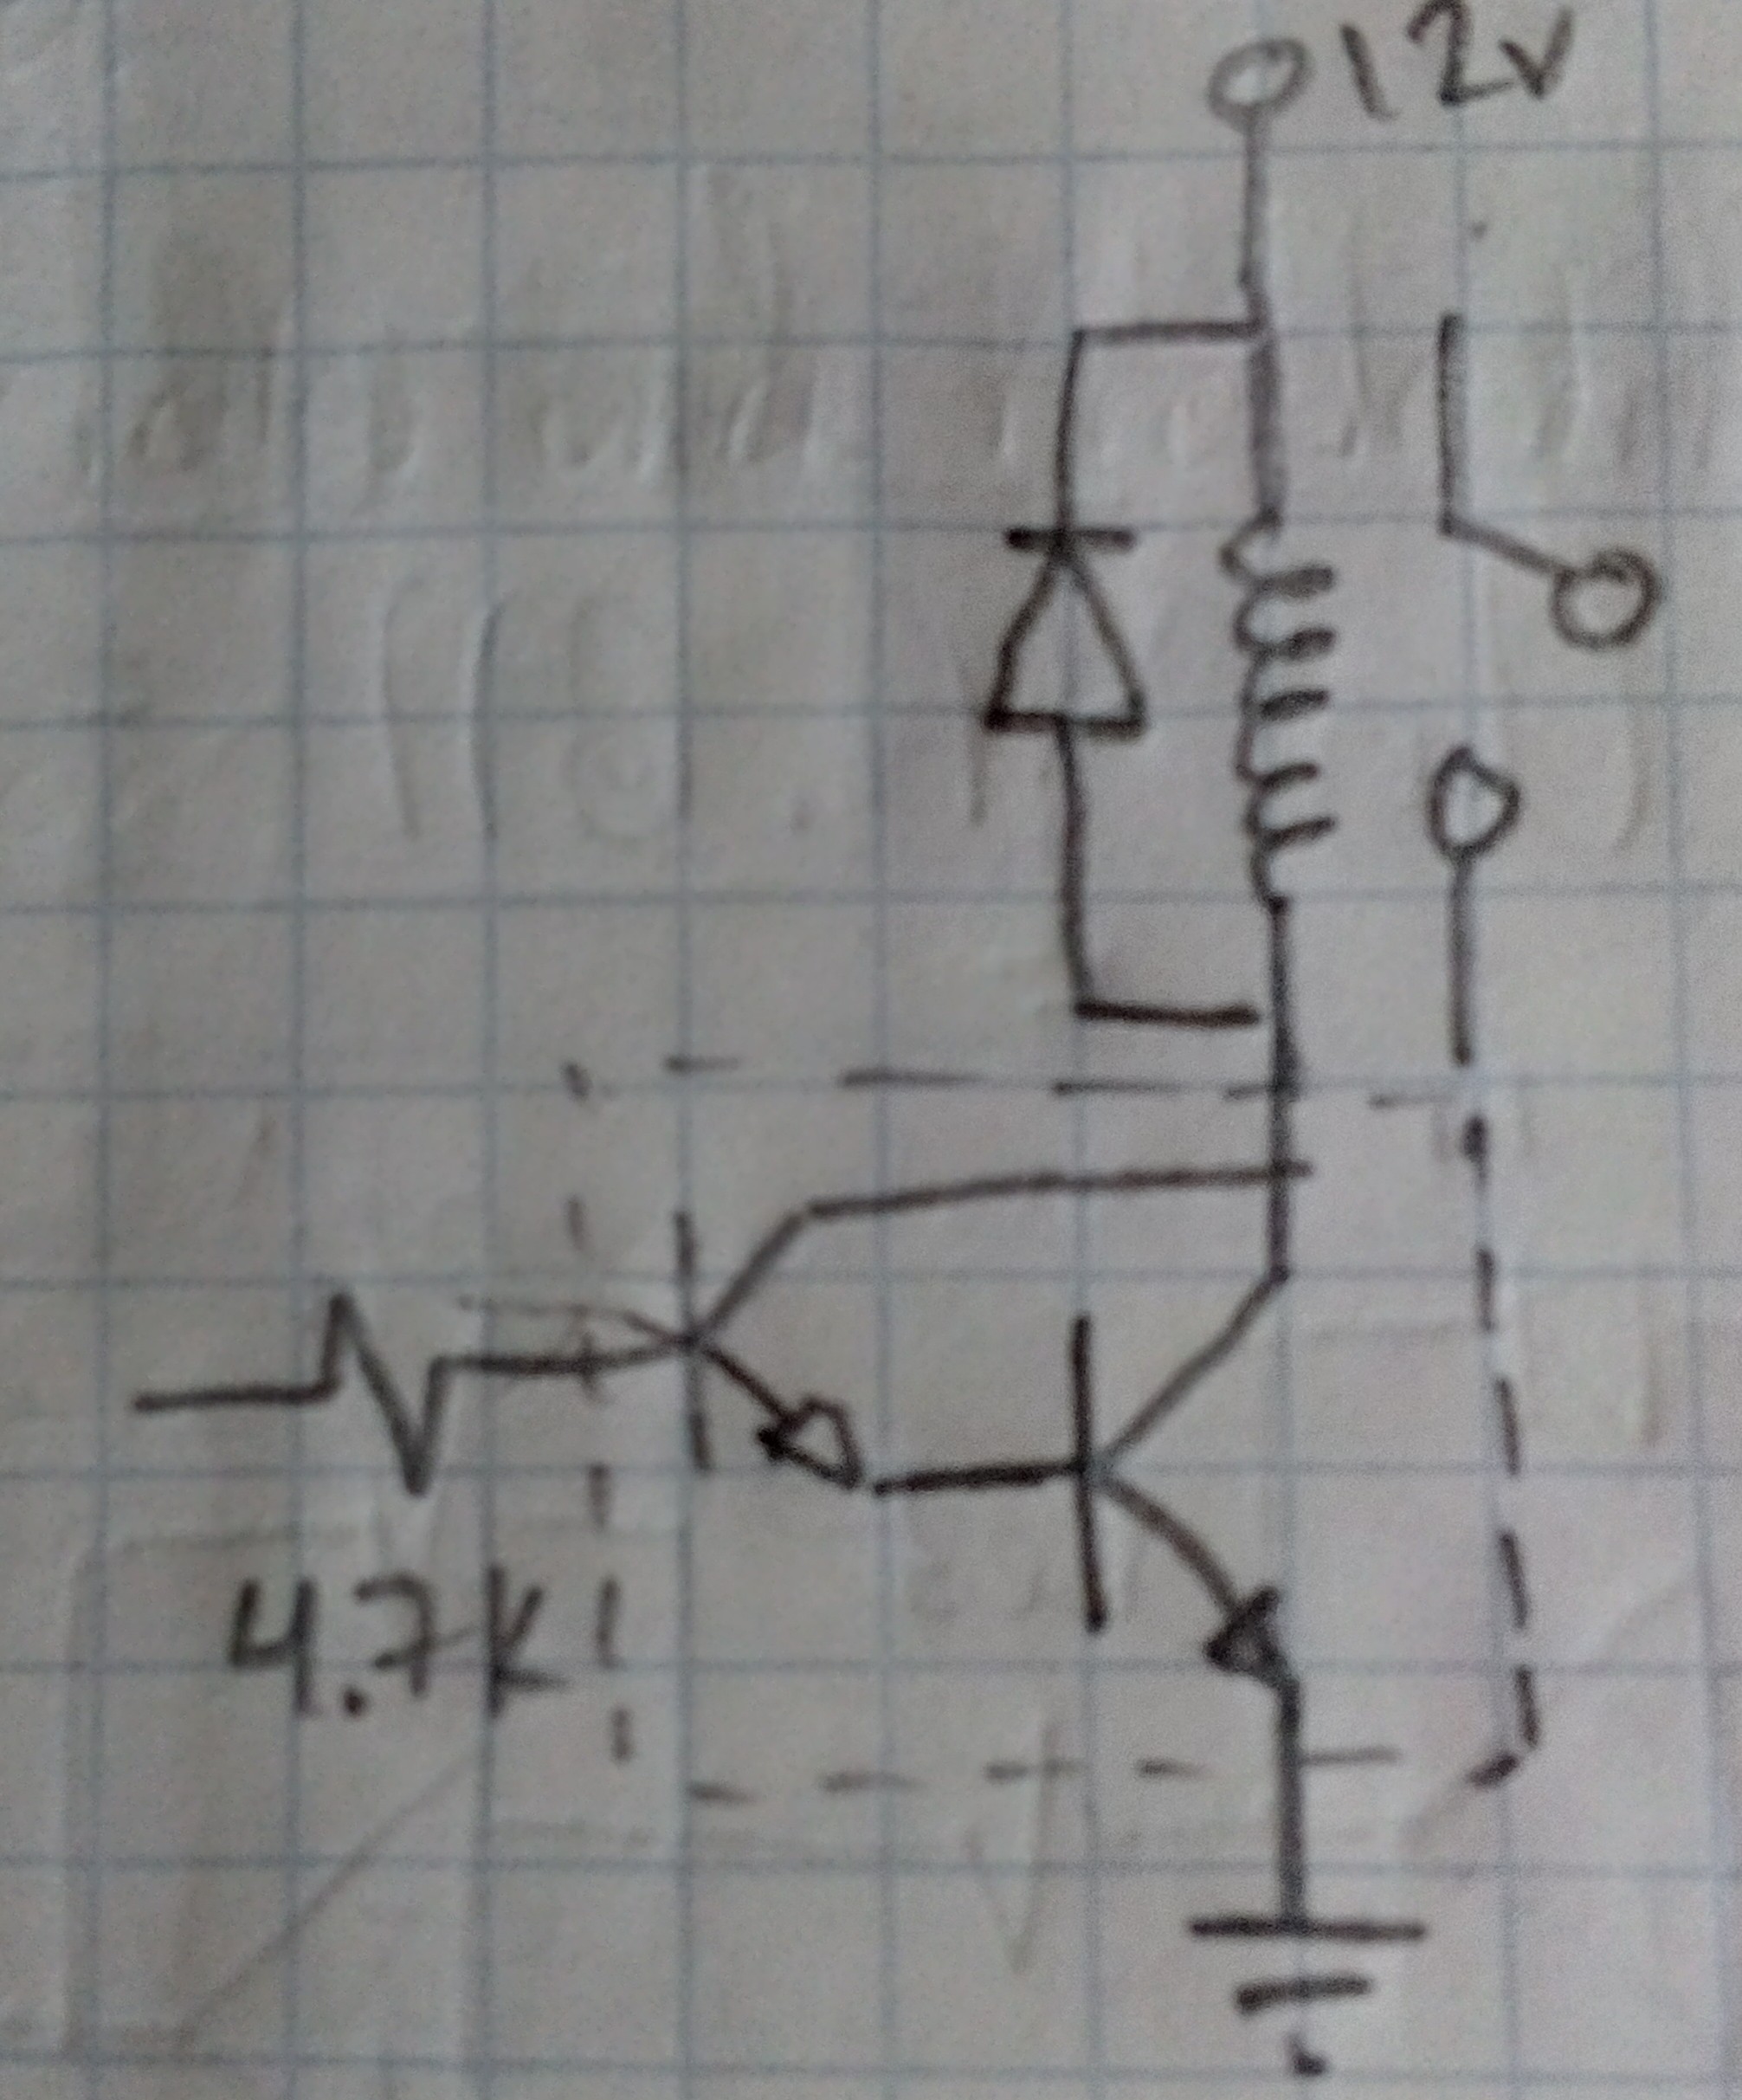 12v
4.7k